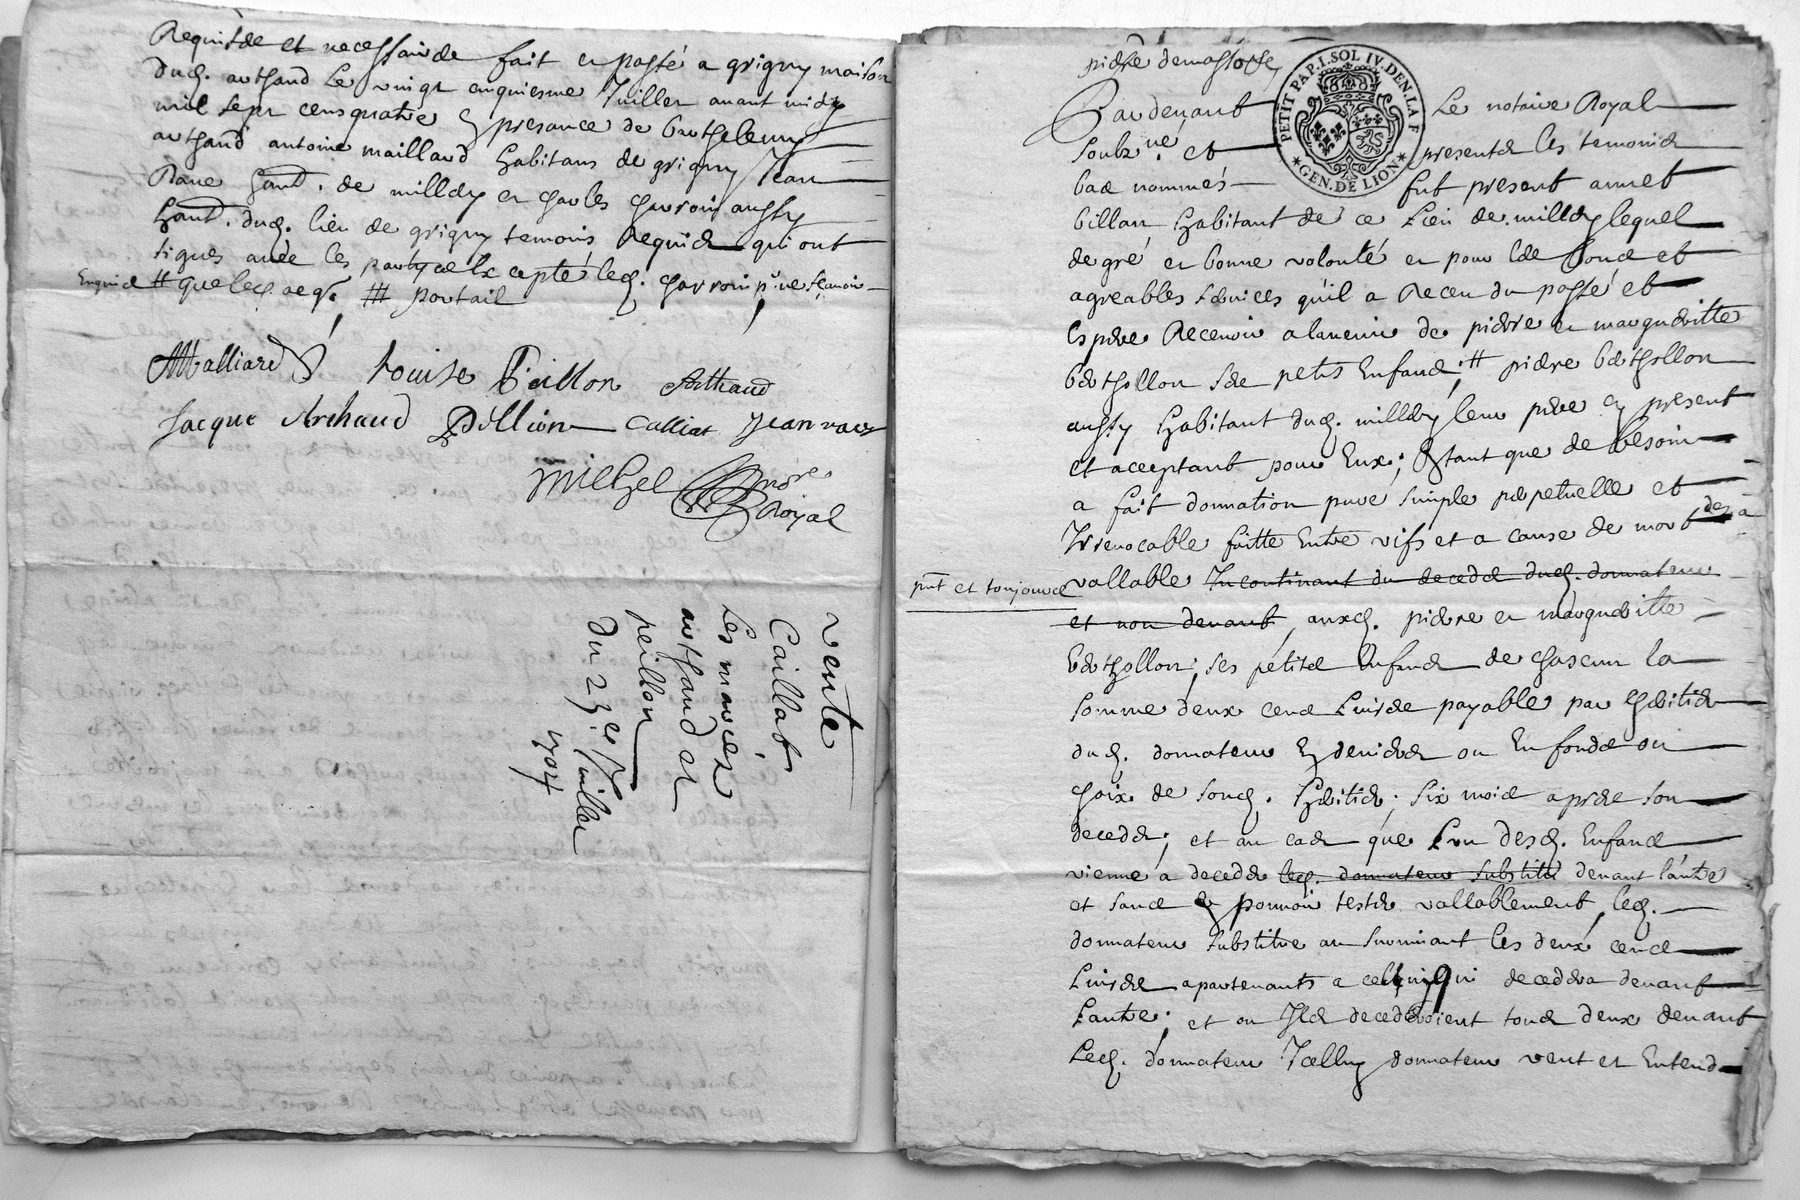 Requise et necessaire fait et passé a grigny maison
dud. arthaud le vingt cinquiesme Juillet avant midy
mil sept cens quatre en presance de Barthelemy
arthaud antoine maillard habitans de grigny Jean
Rave habt. de millery et charles charroin aussy
habt. dud. lieu de grigny temoins Requis qui ont
signés avec les parties Excepté led. charroin pr ne sçavoir
Enquis # que led. # portail
AMalliard Louise Peillon Arthaud
Jacque Arthaud Calliat Jean rave
Michel nore Royal
vente
Caillat
Les mariés
arthaud et
peillon
du 25e Juillet
1704
pierre
PETIT PAP. I. SOL IV. DEN. LA F
GEN. DE LION
Pardevant Le notaire Royal
soubzné et presents les temoins
bas nommés fut present annet
billan habitant de ce Lieu de millery lequel
de gré et bonne volonté et pour les bons et
agreables services qu'il a Receu du passé et
Espere Recevoir a lavenir de pierre et margueritte
berthollon ses petis Enfans, # pierre berthollon
aussy habitant dud. millery leur pere cy present
et acceptant pour Eux; Entant que de besoin
a fait donnation pure simple perpetuelle et
Irrevocable faitte Entre vifs et a cause de mort des a
pnt et toujours vallable Incontinant du deceds dud. donnateur
et non devant, auxd. pierre et margueritte
berthollon, ses petits Enfans de chascun la
somme deux cens Livres payable par l'heritier
dud. donnateur En deniers ou En fonds au
choix de sond. heritier, six mois apres son
deceds; et au cas que L'un desd. Enfans
vienne à deceder led. donnateur substitu devant l'autre
et sans pouvoir tester vallablement, led.
donnateur substitue au survivant les deux cens
Livres apartenants a celluy qui decedera devant
Lautre; et ou Ils decederoient tous deux devant
Led. donnateur Icelluy donnateur veut et Entend